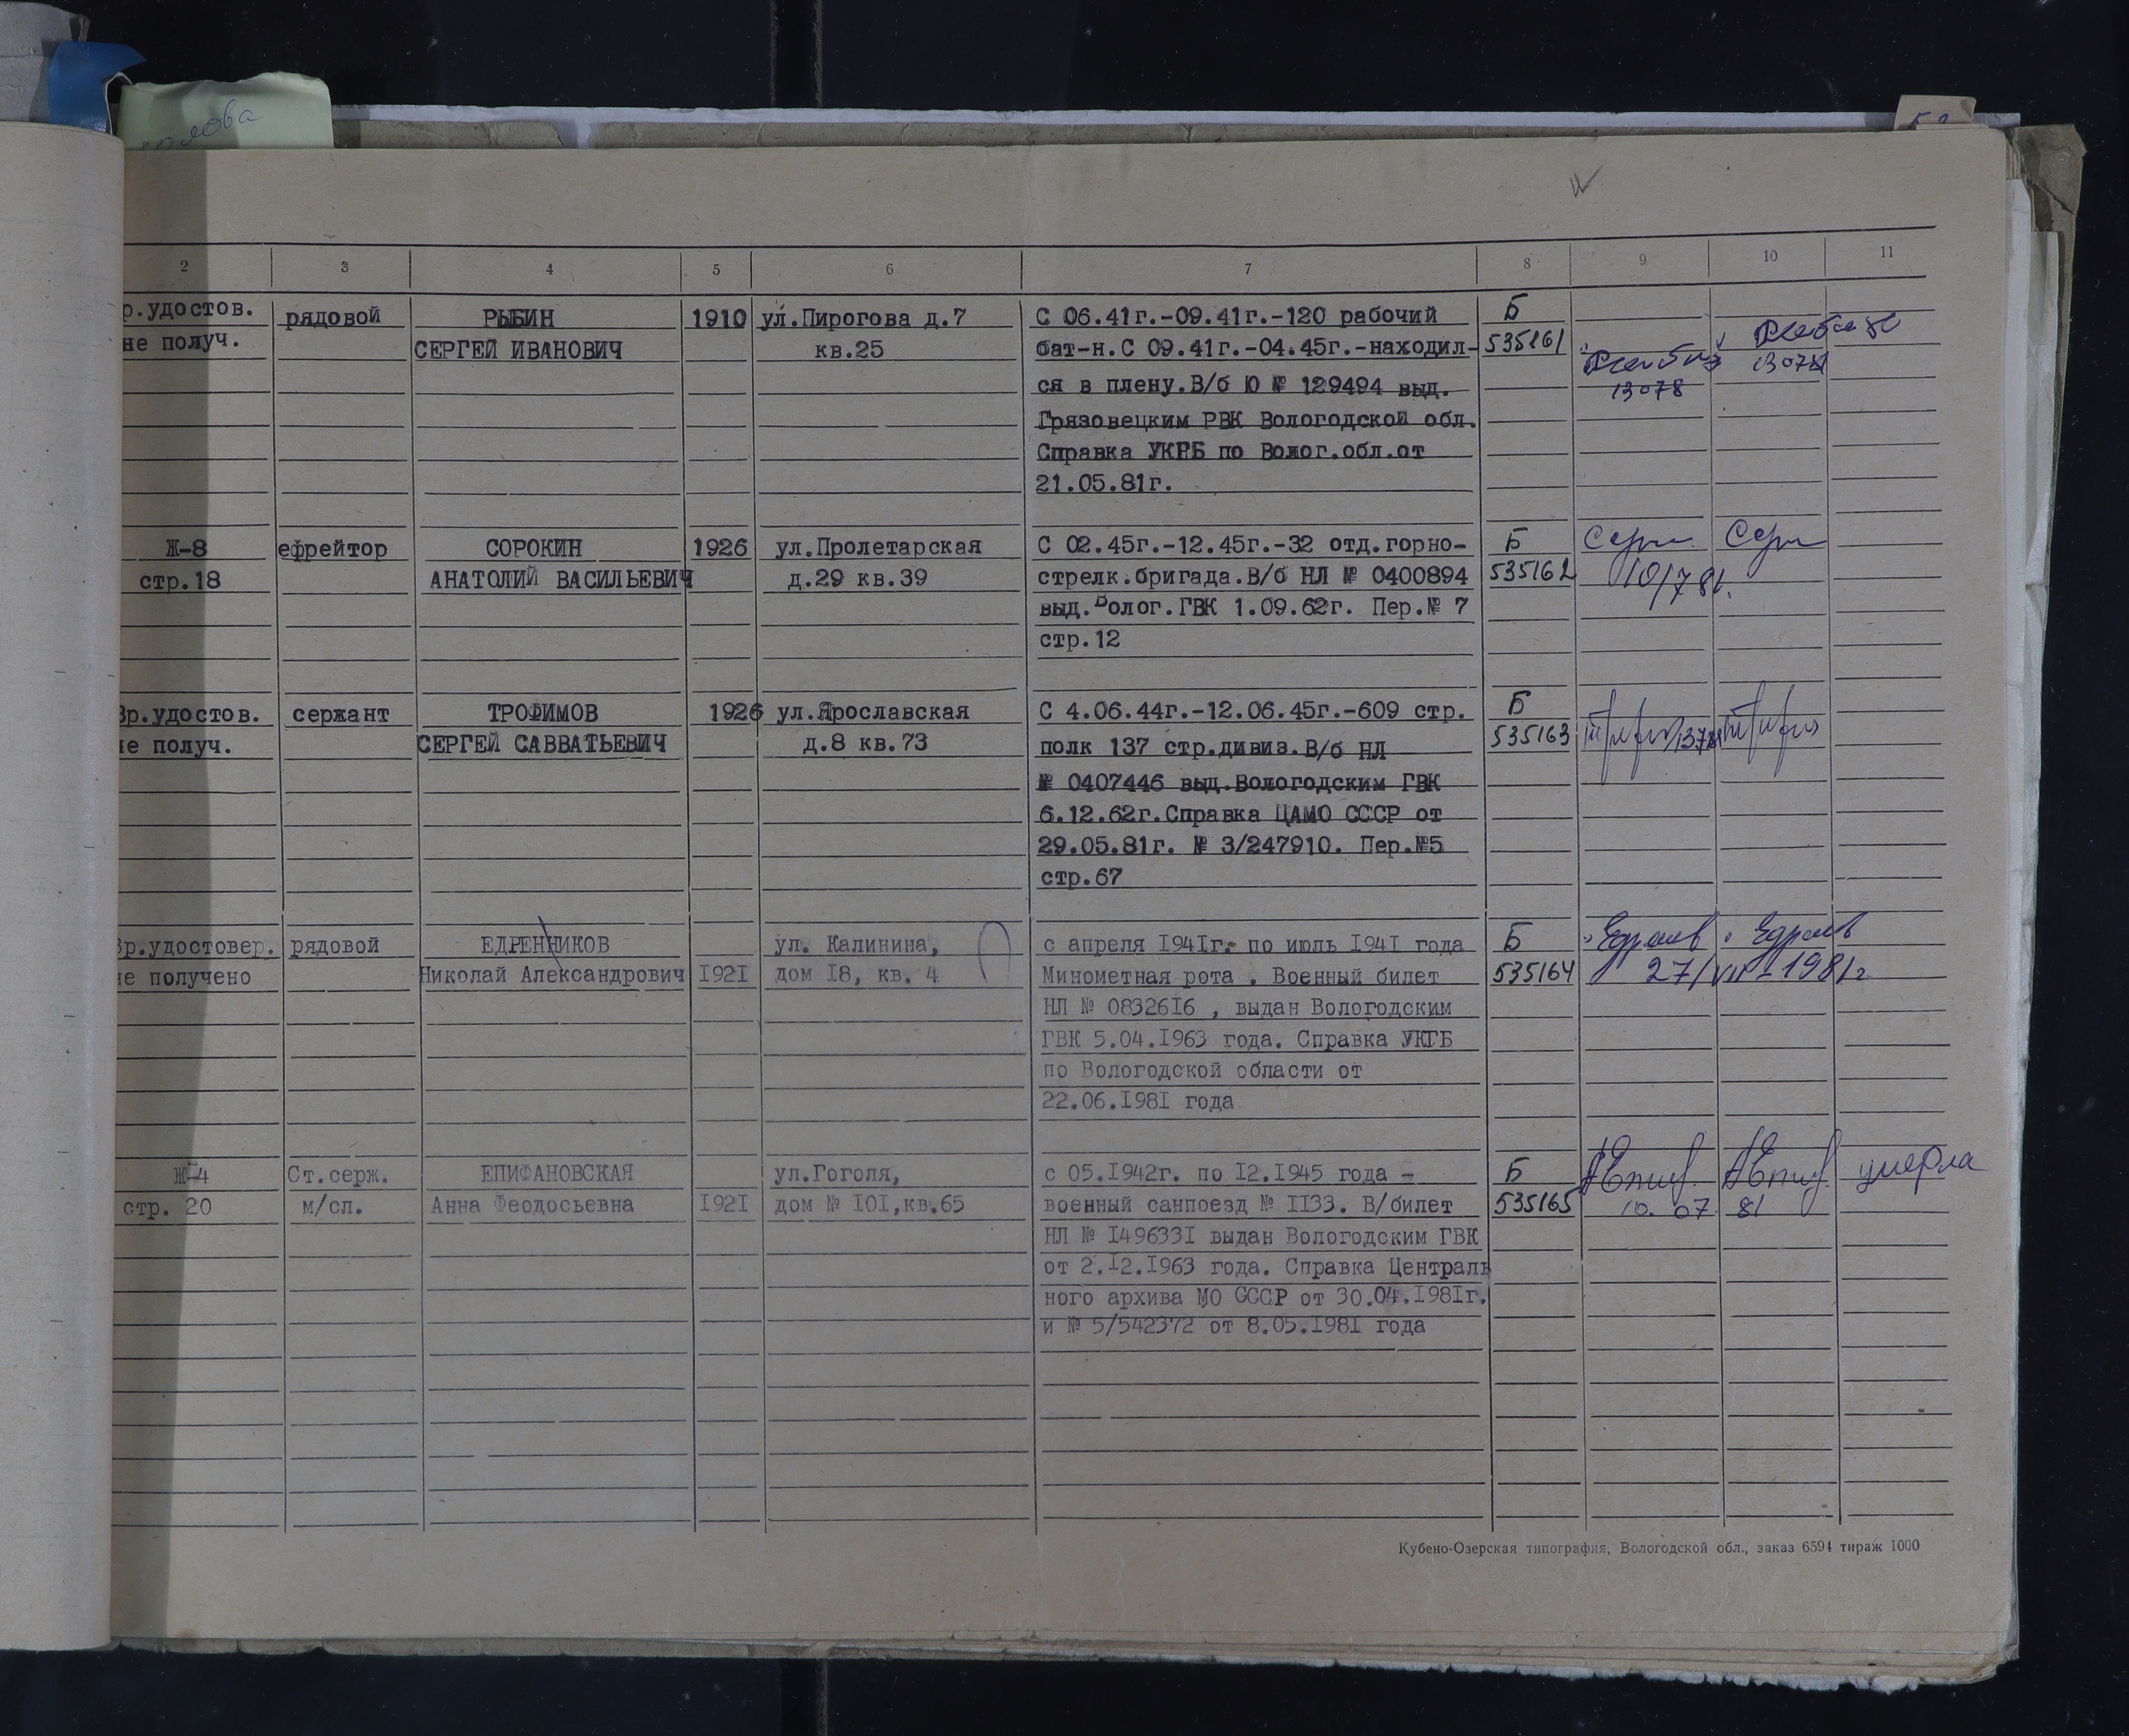 2 3 4 5 6 7 8 9 10 11
р.удостов. рядовой РЫБИН 1910 ул.Пирогова д.7 С 06.41г.-09.41г.-120 рабочий Б
не получ. СЕРГЕЙ ИВАНОВИЧ кв.25 бат-н.С 09.41г.-04.45г.-находил- 535161
ся в плену.В/б Ю № 129494 выд. 13078 13078
Грязовецким РВК Вологодской обл.
Справка УКГБ по Волог.обл.от
21.05.81г.
Ж-8 ефрейтор СОРОКИН 1926 ул.Пролетарская С 02.45г.-12.45г.-32 отд.горно- Б
стр.18 АНАТОЛИЙ ВАСИЛЬЕВИЧ д.29 кв.39 стрелк.бригада.В/б НЛ № 0400894 535162 10/7 81.
выд.Волог.ГВК 1.09.62г. Пер.№ 7
стр.12
Вр.удостов. сержант ТРОФИМОВ 1926 ул.Ярославская С 4.06.44г.-12.06.45г.-609 стр. Б
не получ. СЕРГЕЙ САВВАТЬЕВИЧ д.8 кв.73 полк 137 стр.дивиз.В/б НЛ 535163
№ 0407446 выд.Вологодским ГВК
6.12.62г.Справка ЦАМО СССР от
29.05.81г. № 3/247910. Пер.№5
стр.67
Вр.удостовер. рядовой ЕДРЕННИКОВ ул. Калинина, с апреля I94Iг. по июль I94I года Б
не получено Николай Александрович I92I дом I8, кв. 4 Минометная рота . Военный билет 535164 27/VII-1981г
НЛ № 08326I6 , выдан Вологодским
ГВК 5.04.I963 года. Справка УКГБ
по Вологодской области от
22.06.I98I года
Ж-4 Ст.серж. ЕПИФАНОВСКАЯ ул.Гоголя, с 05.I942г. по I2.I945 года - Б умерла
стр. 20 м/сл. Анна Феодосьевна I92I дом № I0I,кв.65 военный санпоезд № II33. В/билет 535165 10. 07 81
НЛ № I49633I выдан Вологодским ГВК
от 2.I2.I963 года. Справка Централь
ного архива МО СССР от 30.04.I98Iг.
и № 5/542372 от 8.05.I98I года
Кубено-Озерская типография, Вологодской обл., заказ 6594 тираж 1000